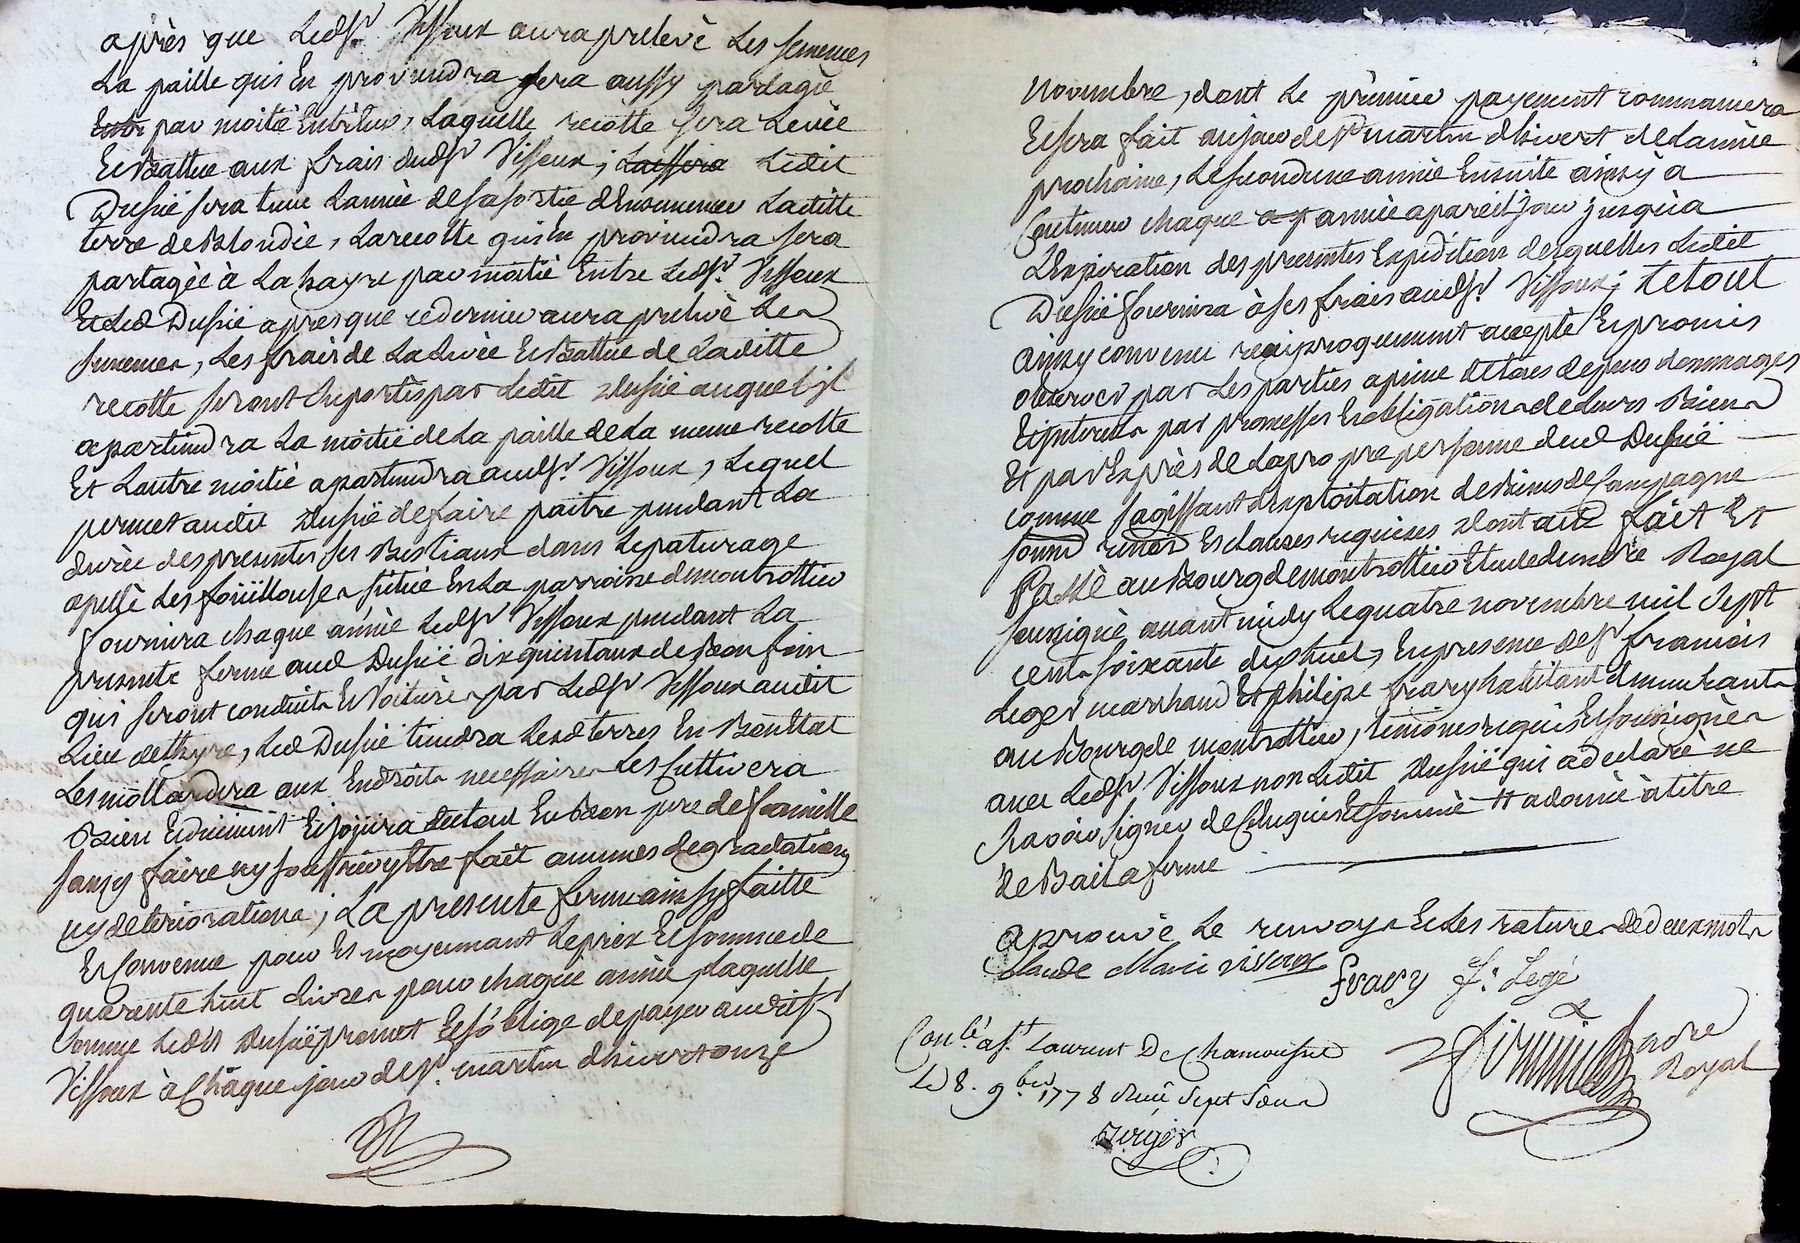 après que Ledsr. Vissoux aura prelevè Les semences
La paille qui En proviendra sera aussy partagée
par moitié Entre Eux, Laquelle recotte sera Levée
Et Battue aux frais dudsr Vissoux; Ledit
Dusié sera tenu L'année de sa sortie d'Ensemencer Laditte
terre de Blondée, La recotte qui En proviendra sera
partagée à La hayre par moitié Entre Ledsr. Vissoux
Et Led Dusié apres que ce dernier aura prelevè Les
semences, Les frais de La Levée Et Battue de Laditte
recotte seront suportés par Ledit Dusié auquel il
apartiendra La moitié de La paille de La meme recotte
Et L'autre moitié apartiendra audsr. Vissoux, Lequel
permet audit Dusié de faire paitre pendant La
durée des presentes ses Bestiaux dans Le paturage
apellé Les fouillouses située En La parroisse de montrottier
fournira chaque année Ledsr Vissoux pendant La
presente ferme aud Dusié dix quintaux de Bon foin
qui seront conduits Et Voiturés par Ledsr Vissoux audit
Lieu de thyre, Led Dusié tiendra Lesd terres En Bon Etat
Les mottardera aux Endroits necessaires Les Cultivera
Bien Et duement Et Jojuira du tout En Bon pere de famille
sans y faire ny souffrir y Etre fait aucunes degradations
ny deteriorations; La presente ferme ainsy faitte
Et Convenue pour Et moyennant Le prix Et somme de
quarente huit Livres pour chaque année, Laquelle
somme Ledit Dusié promet Et s'oblige de payer audit sr
Vissoux à Châque jour de st. martin d'hivert onze
novembre, dont Le prèmier payement commancera
Et sera fait au jour de st martin d'hivert de L'année
prochaine, Le second une année Ensuite ainsy à
Continuer chaque année a pareil jour jusqu'à
L'Expiration des presentes Expedition desquelles Ledit
Dusié fournira à ses frais audsr. Vissoux; Le tout
ainsy convenu reciproquement accepté Et promis
observer par Les parties a peine de tous depens dommages
Et interets par promesses Et obligation de Leurs Biens
Et par Exprès de La propre personne dud Dusié
comme s'agissant d'exploitation de Biens de Campagne
soumis renon Et clauses requises dont acte fait Et
Passé au Bourg de montrottier Etude du nore Royal
soussigné avant midy Le quatre novembre mil sept
cents soixante dix huit, En presence de sr francois
Leger marchand Et philipe frary habitant demeurants
au Bourg de montrottier, temoins requis Et soussignés
avec Ledsr Vissoux non Ledit Dusié qui a declaré ne
scavoir signer de Ce Enquis Et sommé Et a donné à titre
de Bail a ferme
aprouvé Le renvoy Et Les ratures de deux mots
Claude Marie vissoux frary fs. Legé
nore
Royal
Conlé a st Laurent De Chamousset
Le 8. 9bre 1778 Reçu sept sous